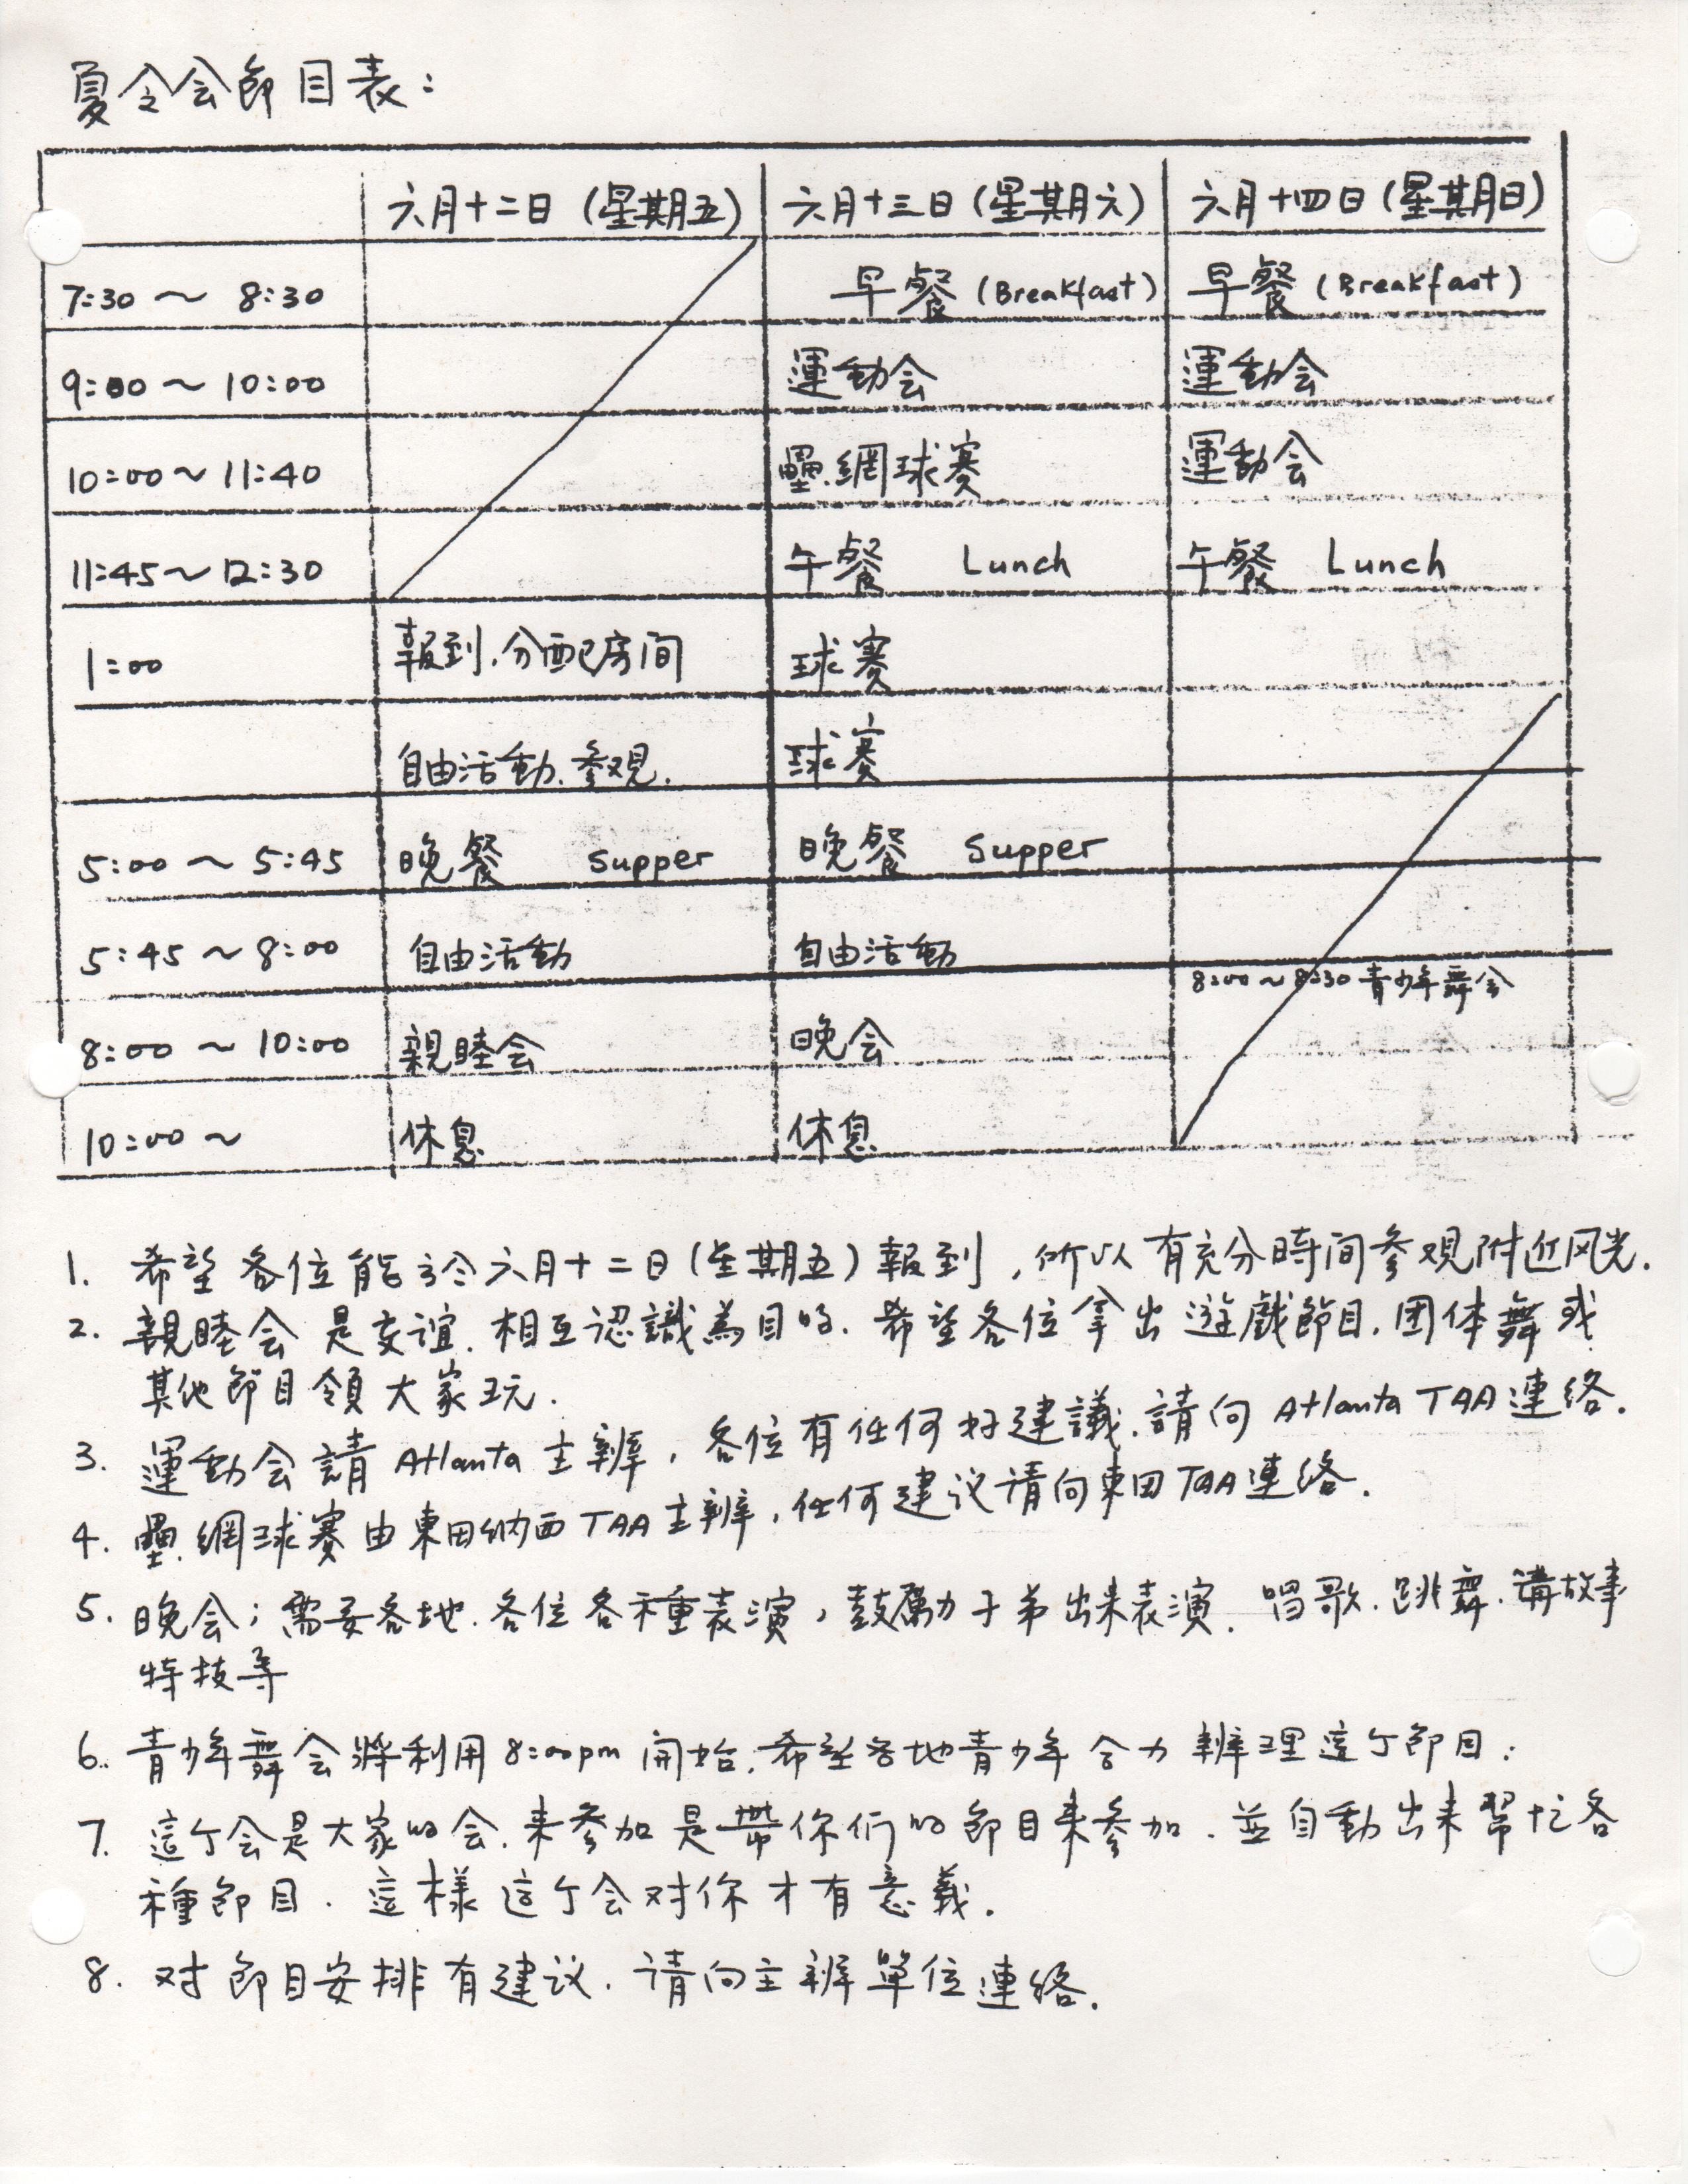 夏令会節目表：
六月十二日（星期五） 六月十三日（星期六） 六月十四日（星期日）
7:30 ～ 8:30 早餐（Breakfast） 早餐（Breakfast）
9:00 ～ 10:00 運動会 運動会
10:00 ～ 11:40 壘.網球賽 運動会
11:45 ～ 12:30 午餐 Lunch 午餐 Lunch
1:00 報到.分配房间 球賽
自由活動.参观. 球賽
5:00 ～ 5:45 晚餐 Supper 晚餐 Supper
5:45 ～ 8:00 自由活動 自由活動
8:00 ～ 8:30 青少年舞会
8:00 ～ 10:00 親睦会 晚会
10:00 ～ 休息 休息
1. 希望各位能於六月十二日（星期五）報到，所以有充分時间参观附近风光.
2. 親睦会是交谊.相互認識為目的.希望各位拿出遊戲節目.团体舞或
其他節目領大家玩.
3. 運動会請 Atlanta 主辦，各位有任何好建議.請向 Atlanta TAA 連絡.
4. 壘.網球賽由東田納西 TAA 主辦，任何建议请向東田 TAA 連络.
5. 晚会；需要各地.各位各種表演，鼓勵子弟出来表演.唱歌.跳舞.講故事
特技等
6. 青少年舞会將利用 8:00pm 開始.希望各地青少年合力辦理這个節目.
7. 這个会是大家的会.来参加是帶你们的節目来参加.並自動出来幫忙各
種節目.這樣這个会对你才有意義.
8. 对節目安排有建议.请向主辦單位連絡.